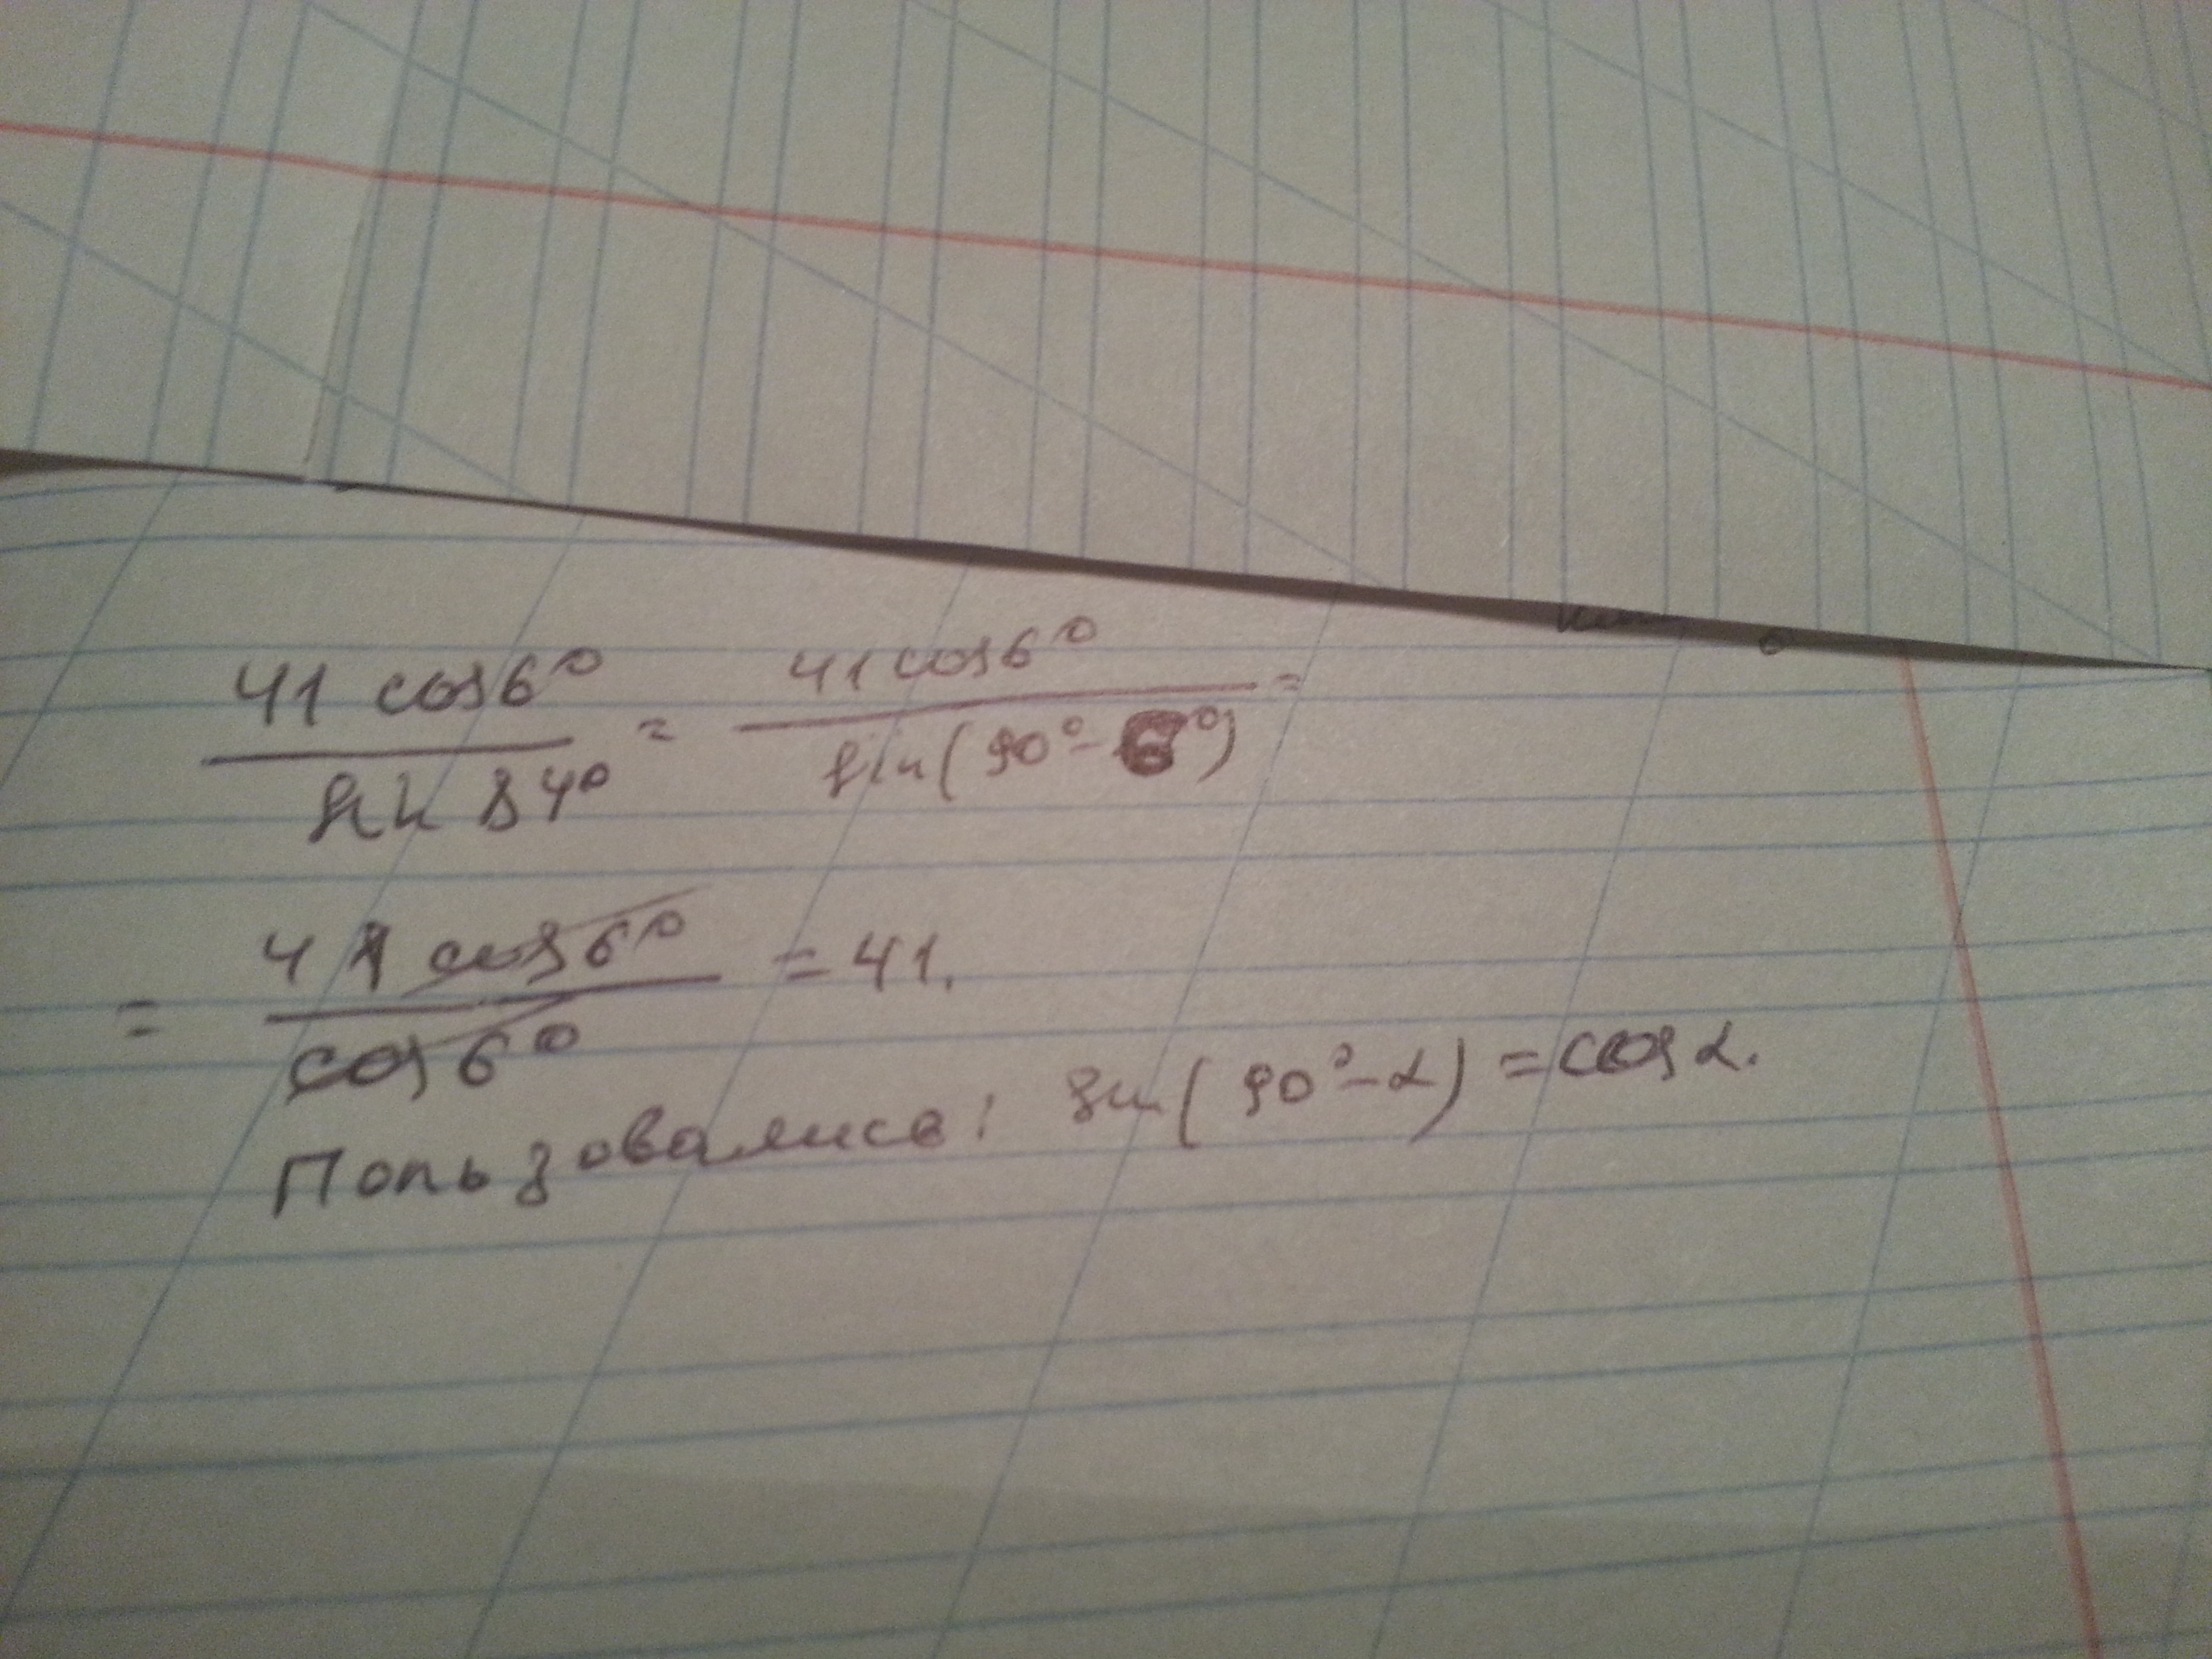 41 cos6° / sin 84° = 41 cos6° / sin(90°-6°) =
= 41 cos6° / cos6° = 41.
Пользовались: sin(90°-α) = cosα.